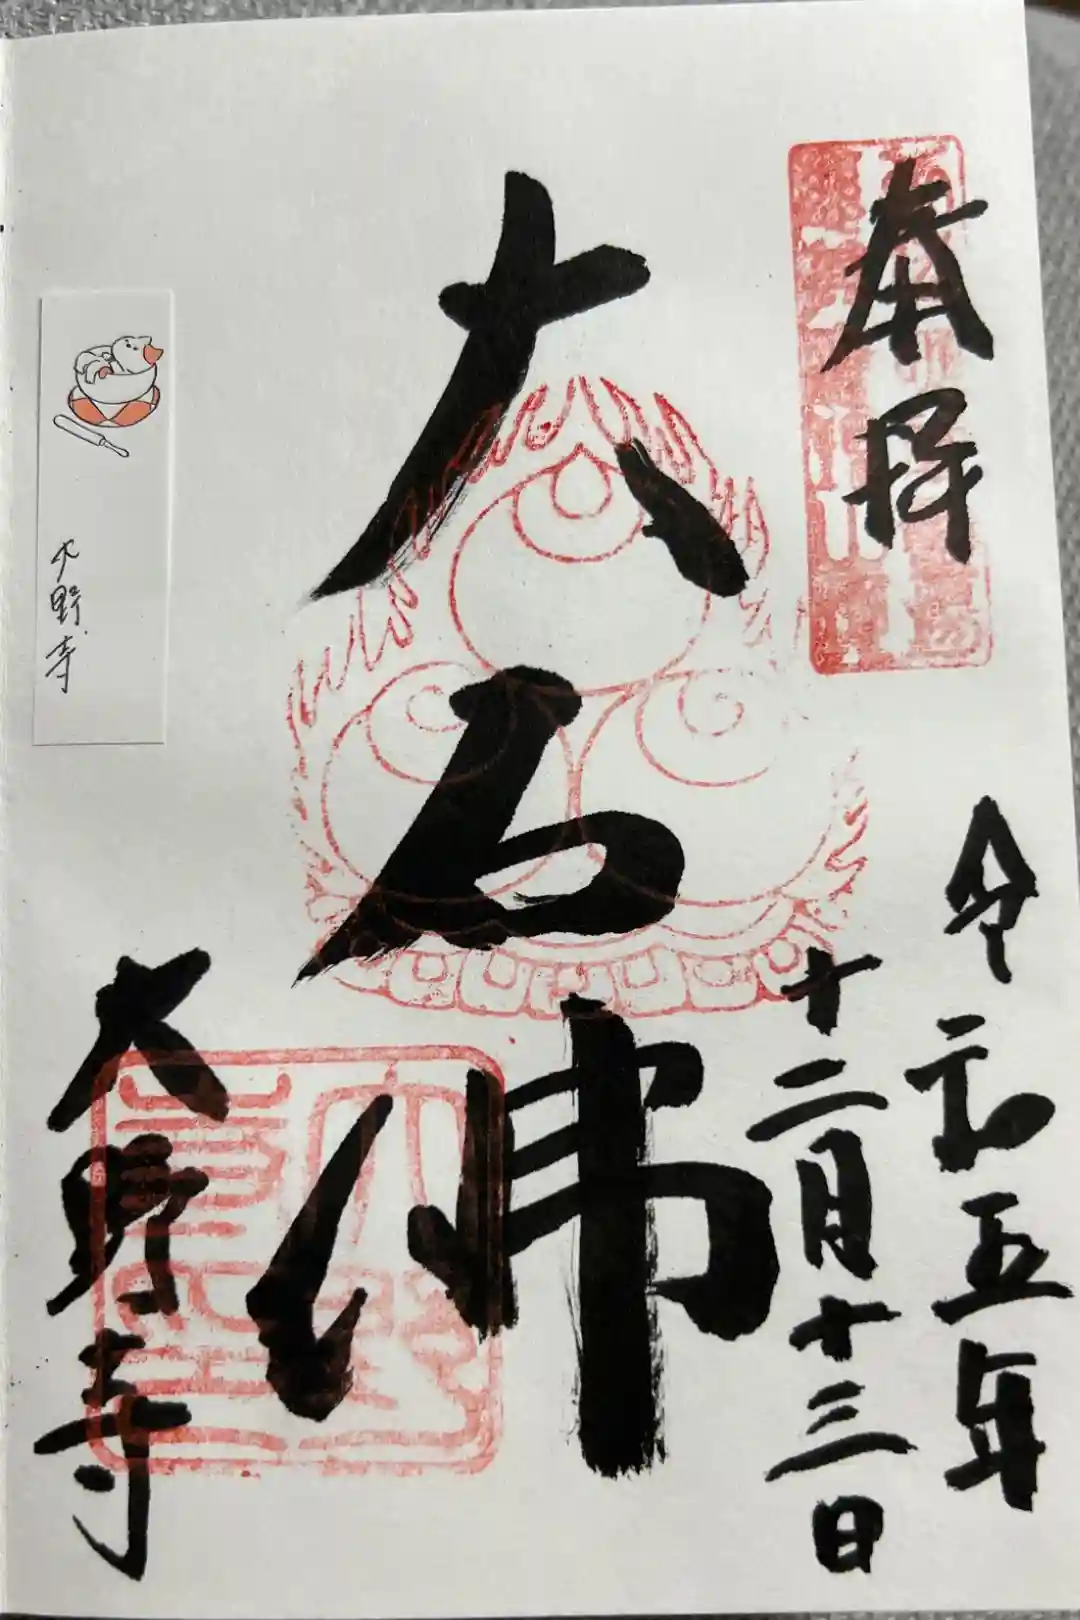 奉拝
令和五年
十二月十三日
大石仏
大野寺
大野寺